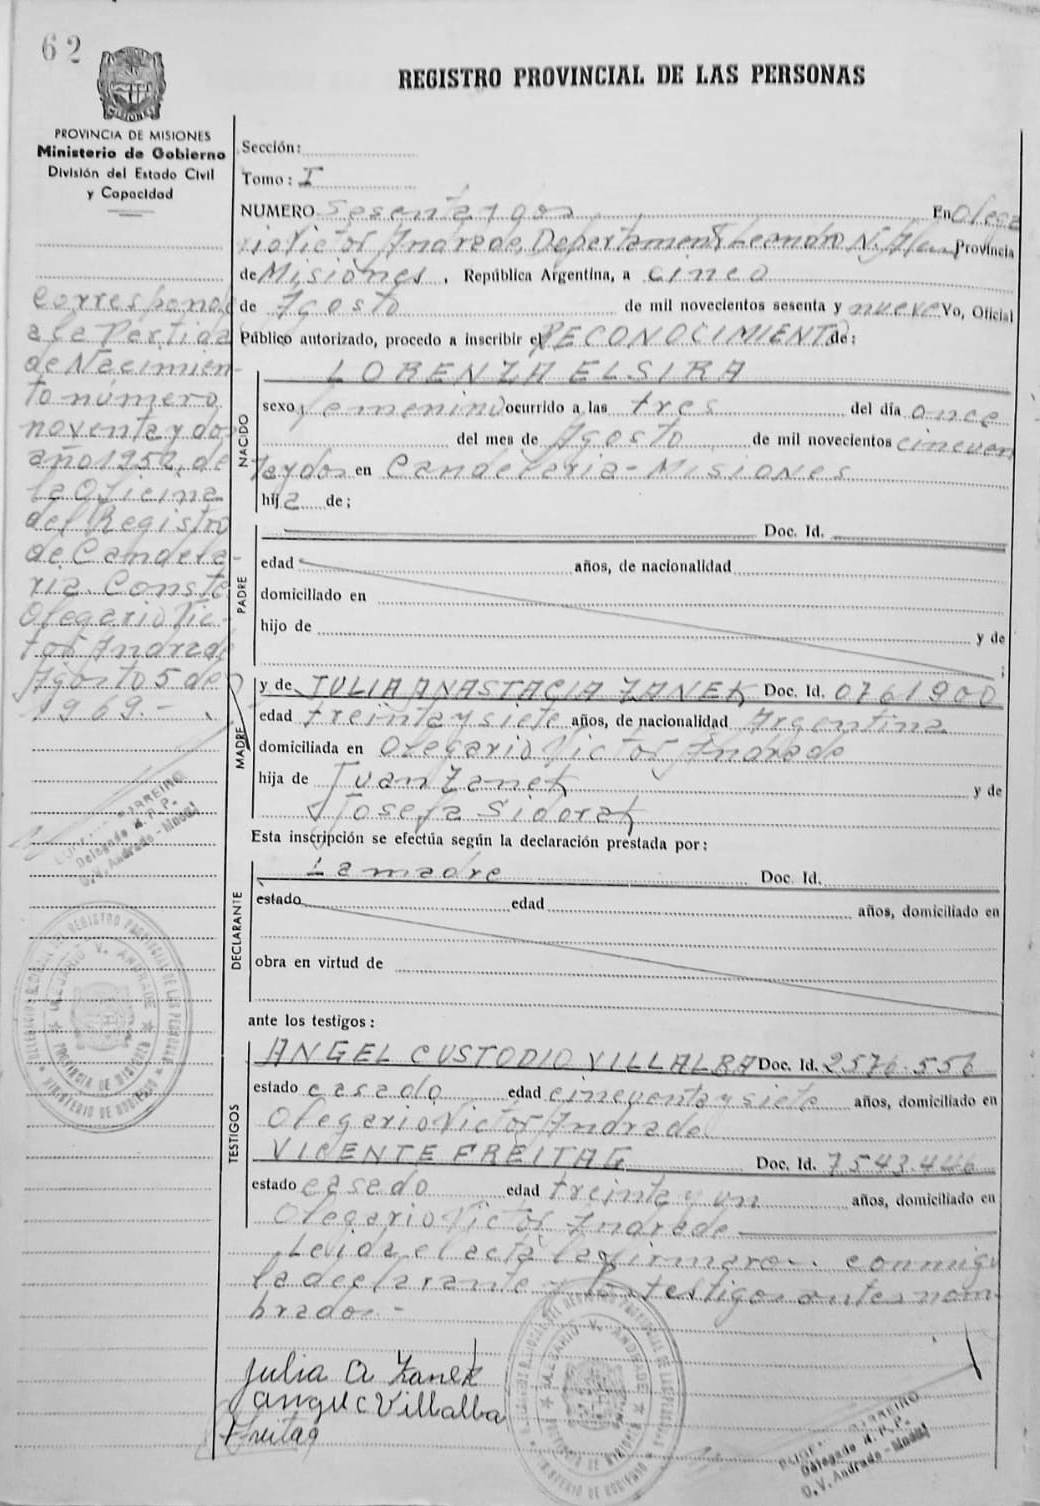 62
REGISTRO PROVINCIAL DE LAS PERSONAS
PROVINCIA DE MISIONES
Ministerio de Gobierno
División del Estado Civil
y Capacidad
Sección:
Tomo: I
NUMERO Sesenta y dos En Olega
rio Victor Andrade, Departamento Leandro N. Alem Provincia
de Misiones, República Argentina, a cinco
de Agosto de mil novecientos sesenta y nueve Yo, Oficial
Público autorizado, procedo a inscribir el RECONOCIMIENTO de:
Correspond
a la Partida
de Nacimien-
to número
noventa y dos
año 1952, de
la Oficina
del Registro
de Candela-
ria. Conste
Olegario Vic-
tor Andrade
Agosto 5 de
1969.-
NACIDO
LORENZA ELSIRA
sexo femenino ocurrido a las tres del día once
del mes de Agosto de mil novecientos cincuen
ta y dos en Candelaria - Misiones
hija de;
PADRE
Doc. Id.
edad años, de nacionalidad
domiciliado en
hijo de y de
;
MADRE
y de JULIA ANASTACIA ZANEK Doc. Id. 0761900
edad treinta y siete años, de nacionalidad Argentina
domiciliada en Olegario Victor Andrade
hija de Juan Zanek y de
Josefa Sidorak
Esta inscripción se efectúa según la declaración prestada por:
DECLARANTE
La madre Doc. Id.
estado edad años, domiciliado en
obra en virtud de
ante los testigos:
TESTIGOS
ANGEL CUSTODIO VILLALBA Doc. Id. 2576.556
estado casado edad cincuenta y siete años, domiciliado en
Olegario Victor Andrade
VICENTE FREITAG Doc. Id. 7543.446
estado casado edad treinta y un años, domiciliado en
Olegario Victor Andrade
Leida el acta la firmaron conmigo
la declarante y los testigos antes nom-
brados-
Julia A Zanek
Angel C Villalba
Freitag
Delegado R.P.P.
O.V. Andrade - Mnes
OLEGARIO V. ANDRADE
PROVINCIA DE MISIONES
MINISTERIO DE GOBIERNO
OLEGARIO V. ANDRADE
PROVINCIA DE MISIONES
MINISTERIO DE GOBIERNO
Delegado R.P.P.
O.V. Andrade - Mnes